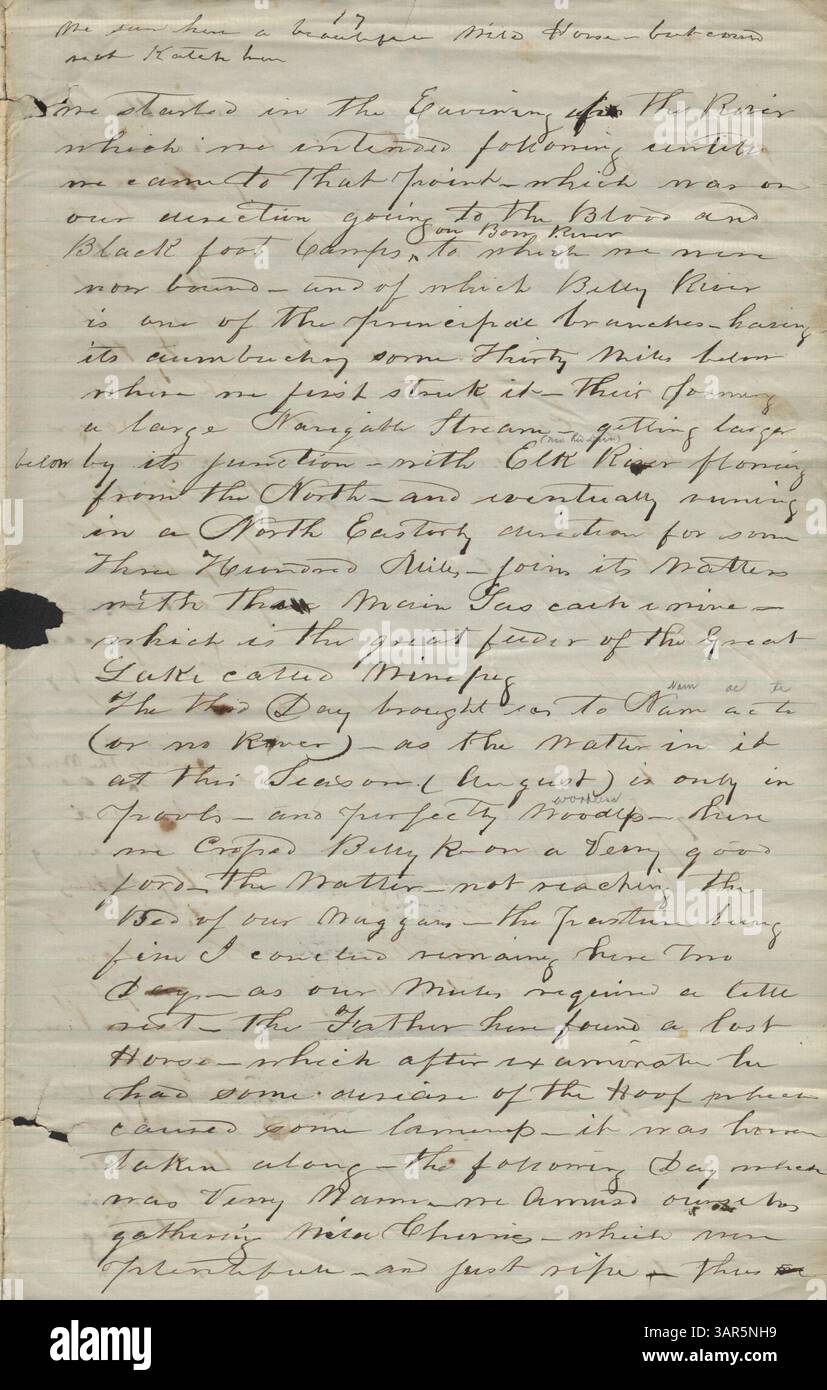 17
We saw here a beautiful Wild Horse – but could
not Katch him
We started in the Eavining up the River
which we intended following untill
we came to that point – which was on
our direction going to the Blood and
on Bow River
Black foot Camps ^ to which we were
now bound – and of which Belly River
is one of the principal branches – having
its aumbuchy some Thirty Miles below
where we first struck it – their forming
a large Navigable Stream – getting larger
below by its junction – with Elk River flowing
from the North – and eventually runing
in a North Easterly direction for some
Three Hundred Miles – joins its Watters
with the Main Sascatchewine –
which is the great feeder of the Great
Lake called Winepeg
The third Day brought us to Nam ac te
(or no River) – as the Watter in it
at this Season (August) is only in
Pools – and perfectly Woodless – here
we Crossed Belly R – on a Verry good
ford – the Watter – not reaching the
Bed of our Waggans – the pasture being
fine I concluded remaing here Two
Days – as our Mules required a little
rest – the Father here found a lost
Horse – which after examination he
had some disease of the Hoof which
caused some lameness – it was however
taken along – the following Day which
was Verry Warm – we Amused ourselves
gathering Wild Cherries – which were
plentifull – and just ripe – thus
alamy
Image ID: 3AR5NH9
www.alamy.com